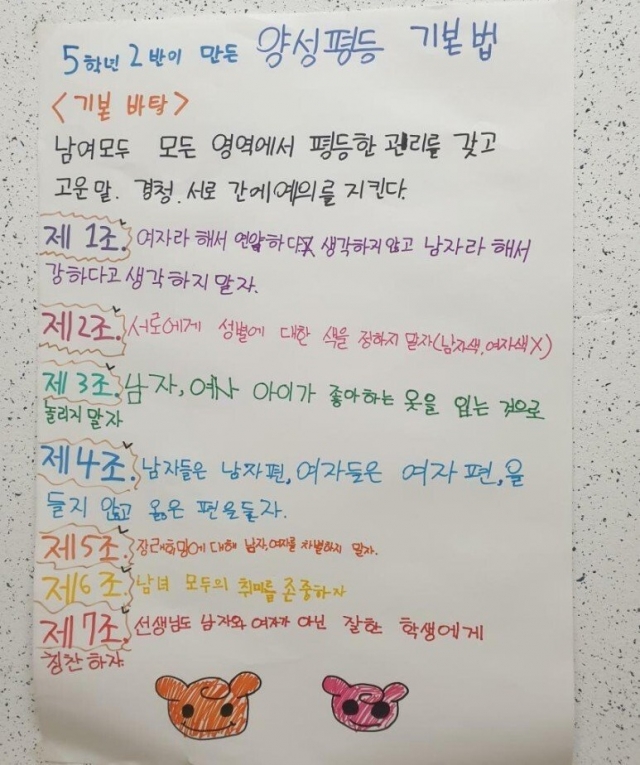 5학년 2반이 만든 양성평등 기본법
<기본 바탕>
남여모두 모든 영역에서 평등한 권리를 갖고
고운말. 경청. 서로 간에 예의를 지킨다.
제 1조. 여자라 해서 연약하다 생각하지 않고 남자라 해서
강하다고 생각하지 말자.
제2조. 서로에게 성별에 대한 색을 정하지 말자(남자색, 여자색X)
제 3조. 남자, 여자 아이가 좋아하는 옷을 입는 것으로
놀리지 말자
제4조. 남자들은 남자편, 여자들은 여자편, 을
들지 않고 옳은 편을들자.
제5조. 장래희망에 대해 남자,여자를 차별하지 말자.
제6조. 남녀 모두의 취미를 존중하자
제7조. 선생님도 남자와 여자가 아닌 잘한 학생에게
칭찬 하자